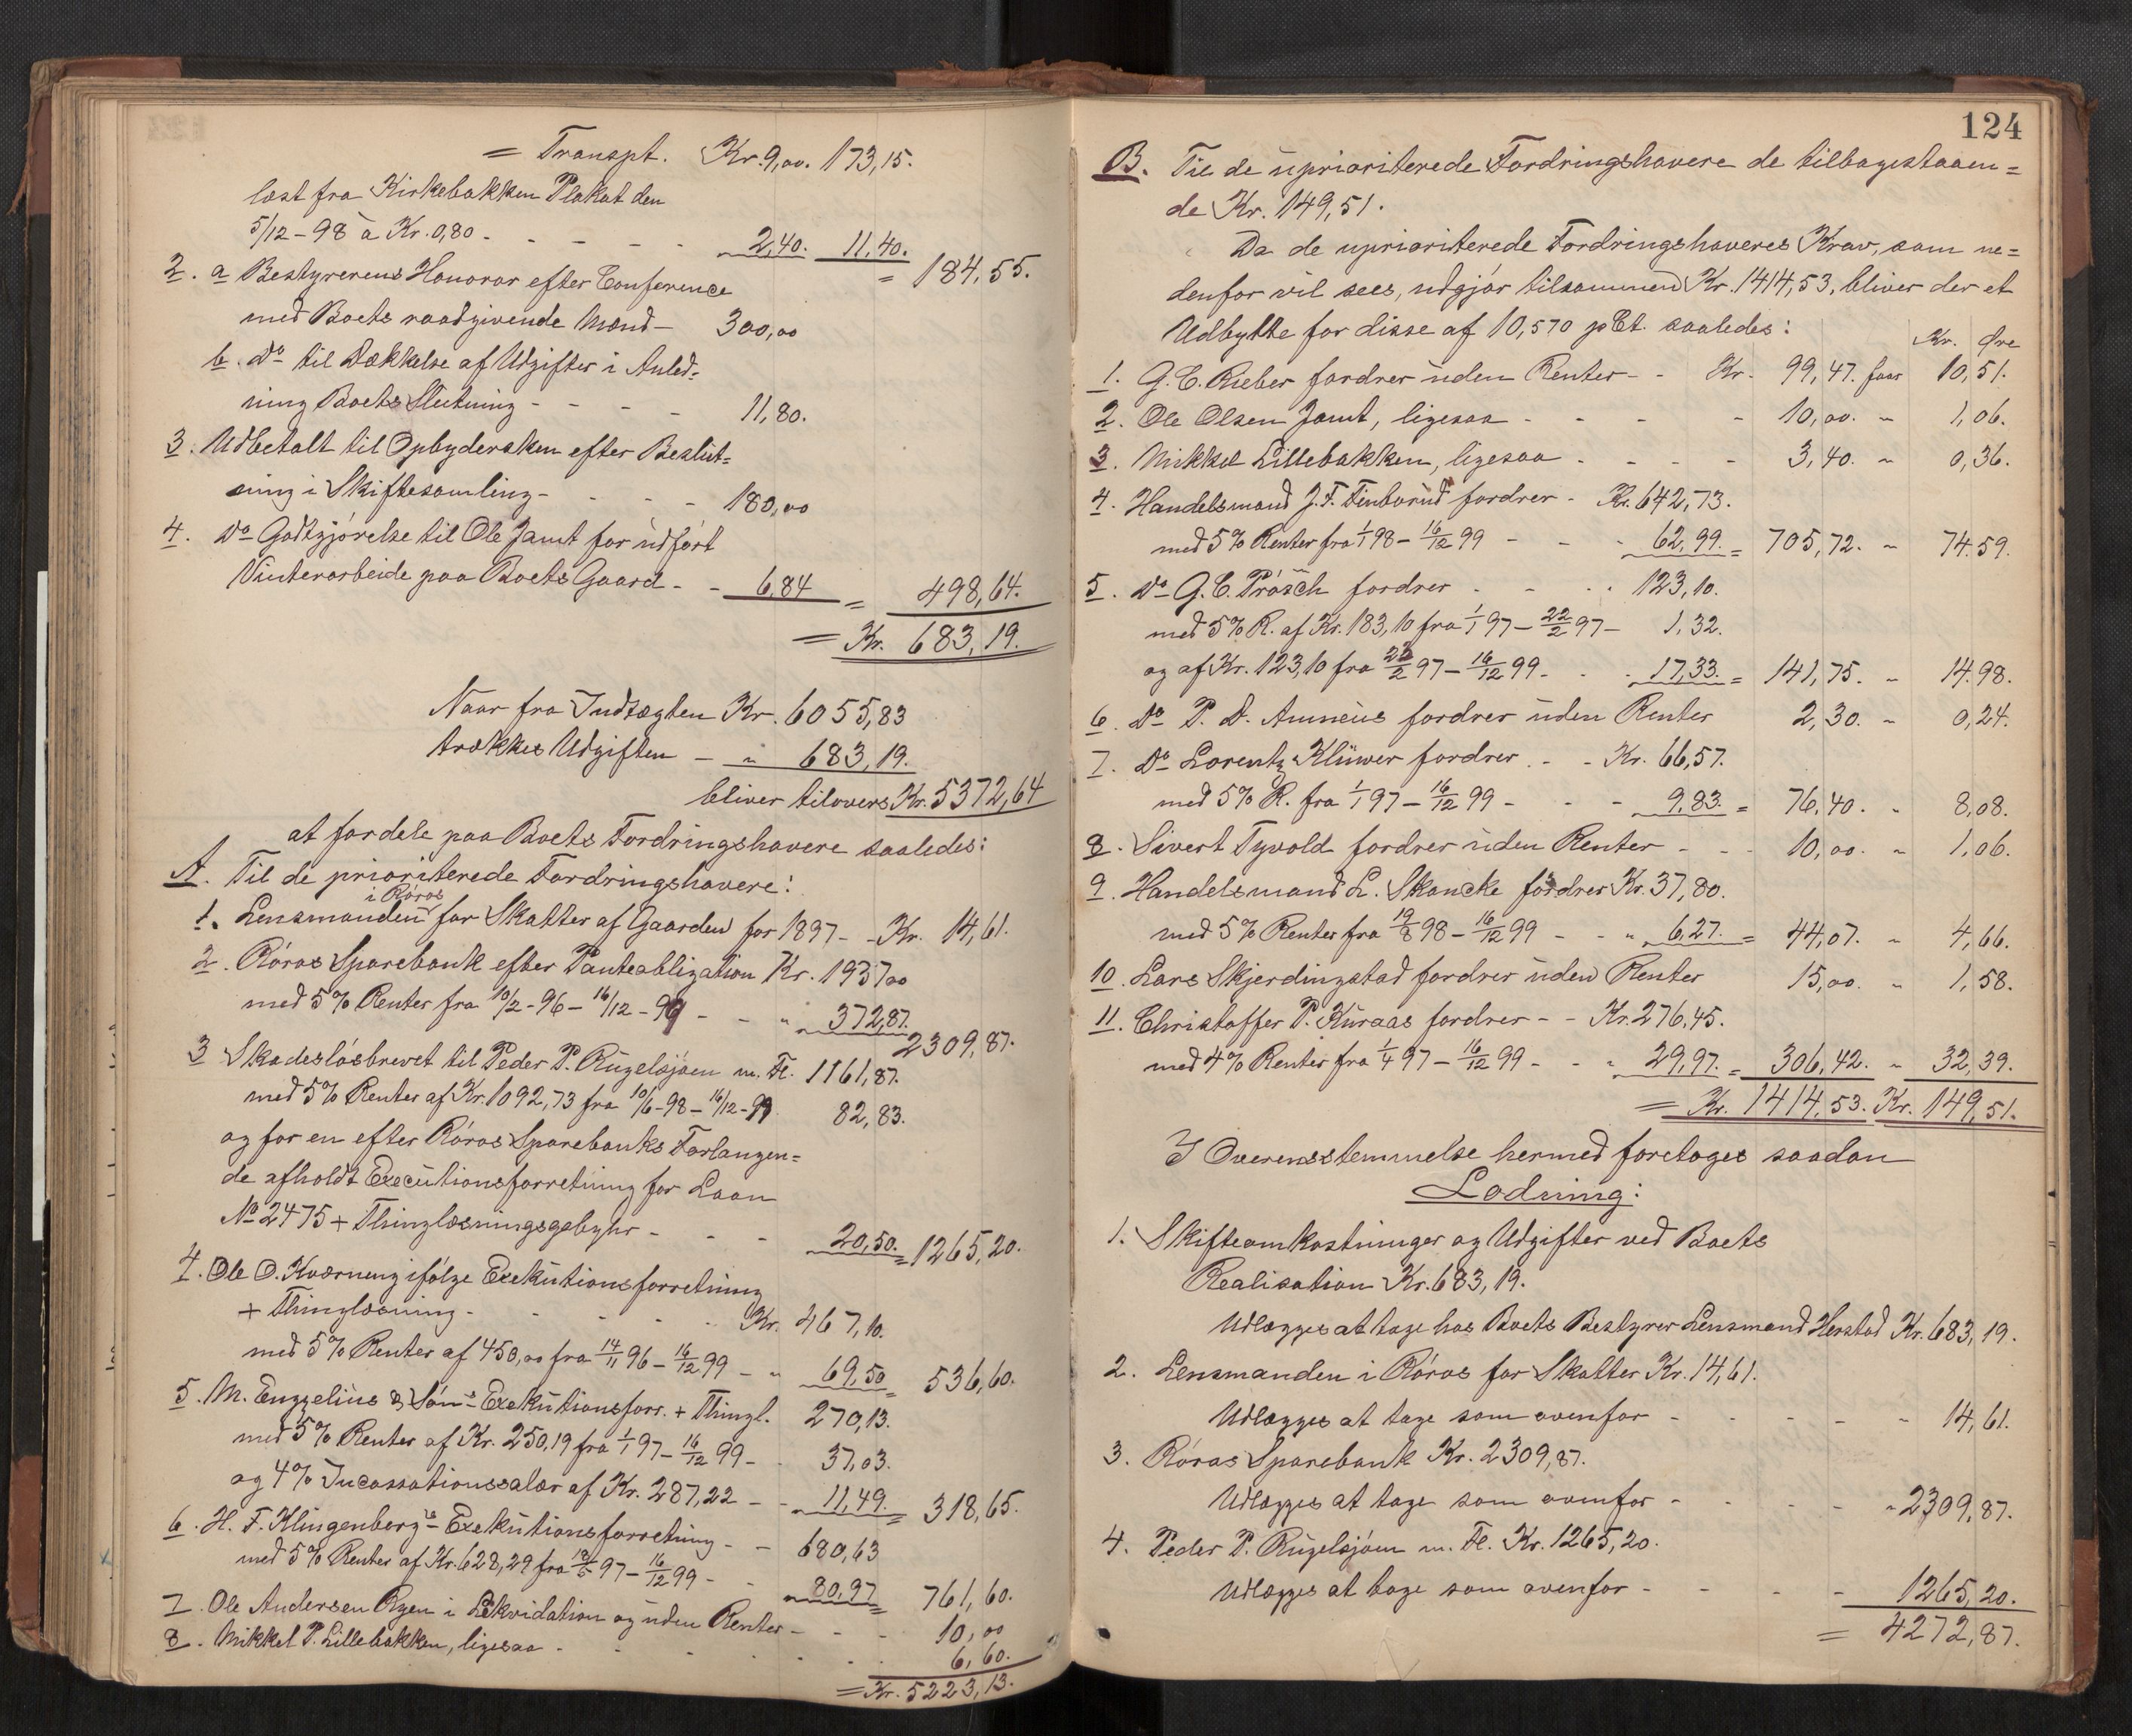 = Transpt. Kr. 9,00. 173,15.
læst fra Kirkebakken Plakat den
5/12-98 à Kr. 0,80 - - - - - " 2,40. 11,40.
= 184,55.
2. a Bestyrerens Honorar efter Conference
med Boets raadgivende Mænd - 300,00
b. Do til Dækkelse af Udgifter i Anled=
ning Boets Slutning - - - - 11,80.
3. Udbetalt til Opbydersken efter Beslut=
ning i Skiftesamling - - - - 180,00
4. Do Godtgjörelse til Ole Jamt for udfört
Vinterarbeide paa Boets Gaard - - 6,84 = 498,64.
= Kr. 683,19.
Naar fra Indtægten Kr. 6055,83
trækkes Udgiften - " 683,19.
bliver tilovers Kr. 5372,64
at fordele paa Boets Fordringshavere saaledes:
A. Til de prioriterede Fordringshavere:
1. Lensmanden i Röros for Skatter af Gaarden for 1897 - - Kr. 14,61.
2. Röros Sparebank efter Panteobligation Kr. 1937,00
med 5% Renter fra 10/2-96 - 16/12-99 - - " 372,87.
2309,87.
3 Skadeslösbrevet til Peder P. Rugelsjöen m. Fl. 1161,87.
med 5% Renter af Kr. 1092,73 fra 10/6-98 - 16/12-99 82,83.
og for en efter Röros Sparebanks Forlangen=
de afholdt Executionsforretning for Laan
No 2475 + Thinglæsningsgebyhr - - - 20,50. = 1265,20.
4. Ole O. Kværneng ifölge Exekutionsforretning
+ Thinglæsning - - - - - Kr. 467,10.
med 5% Renter af 450,00 fra 14/11 96 - 16/12 99 - " 69,50 = 536,60.
5. M. Engzelius & Sön's Exekutionsforr. + Thingl. 270,13.
med 5% Renter af Kr. 250,19 fra 1/1 97 - 16/12 99 - 37,03.
og 4% Incassationssalær af Kr. 287,22 - - 11,49. = 318,65.
6. H. F. Klingenberg's Exekutionsforretning - - 680,63
med 5% Renter af Kr. 628,29 fra 18/5 97 - 16/12 99 - - " 80,97 = 761,60.
7. Ole Andersen Ryen i Likvidation og uden Renter - - - 10,00
8. Mikkel P. Lillebakken, ligesaa - - - - - 6,60.
= Kr. 5223,13.
124
B. Til de uprioriterede Fordringshavere de tilbagestaaen=
de Kr. 149,51.
Da de uprioriterede Fordringshaveres Krav, som ne=
denfor vil sees, udgjör tilsammen Kr. 1414,53, bliver der et
Udbytte for disse af 10,570 pCt. saaledes:
Kr. Öre
1. G. C. Rieber fordrer uden Renter - - Kr. 99,47. faar 10,51.
2. Ole Olsen Jamt, ligesaa - - - - 10,00. " 1,06.
3. Mikkel Lillebakken, ligesaa - - - - 3,40. " 0,36.
4. Handelsmand J. F. Finborud fordrer - Kr. 642,73.
med 5% Renter fra 1/1 98 - 16/12 99 - - - 62,99. = 705,72. " 74.59.
5. Do G. C. Prösch fordrer - - - 123,10.
med 5% R. af Kr. 183,10 fra 1/1 97 - 22/2 97 - 1,32.
og af Kr. 123,10 fra 22/2 97 - 16/12 99 - - - 17,33. = 141,75. " 14.98.
6. Do P. D. Amnéus fordrer uden Renter 2,30. " 0,24.
7. Do Lorentz Klüwer fordrer - - Kr. 66,57.
med 5% R. fra 1/1 97 - 16/12 99 - - - 9,83. = 76,40. " 8,08.
8. Sivert Tyvold fordrer uden Renter - - - 10,00. " 1,06.
9. Handelsmand L. Skancke fordrer Kr. 37,80.
med 5% Renter fra 19/8 98 - 16/12 99 - - " 6,27. = 44,07. " 4,66.
10. Lars Skjerdingstad fordrer uden Renter 15,00. " 1,58.
11. Christoffer P. Kuraas fordrer - - Kr. 276,45.
med 4% Renter fra 1/4 97 - 16/12 99 - - " 29,97. = 306,42. " 32,39.
= Kr. 1414,53. Kr. 149,51.
I Overensstemmelse hermed foretoges saadan
Lodning:
1. Skifteomkostninger og Udgifter ved Boets
Realisation Kr. 683,19.
Udlægges at tage hos Boets Bestyrer Lensmand Herstad Kr. 683,19.
2. Lensmanden i Röros for Skatter Kr. 14,61.
Udlægges at tage som ovenfor - - - - " 14,61.
3. Röros Sparebank Kr. 2309,87.
Udlægges at tage som ovenfor - - - - " 2309,87.
4. Peder P. Rugelsjöen m. Fl. Kr. 1265,20.
Udlægges at tage som ovenfor - - - - 1265,20.
= 4272,87.